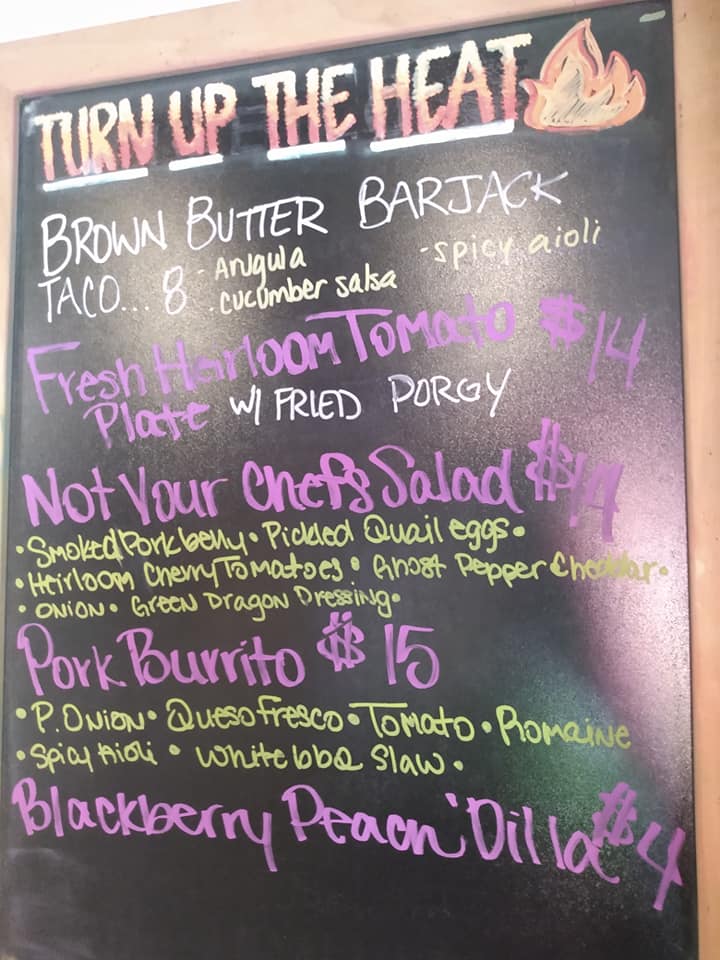 TURN UP THE HEAT
BROWN BUTTER BARJACK
TACO... 8 - Arugula - spicy aioli
. cucumber salsa
Fresh Heirloom Tomato $14
Plate w/ FRIED PORGY
Not Your Chefs Salad $14
• Smoked Pork belly • Pickled Quail eggs •
• Heirloom Cherry Tomatoes • Ghost Pepper Cheddar •
• ONION • Green Dragon Dressing •
Pork Burrito $15
• P. Onion • Queso fresco • Tomato • Romaine
• Spicy Aioli • White bbq Slaw •
Blackberry Peach 'Dilla $4